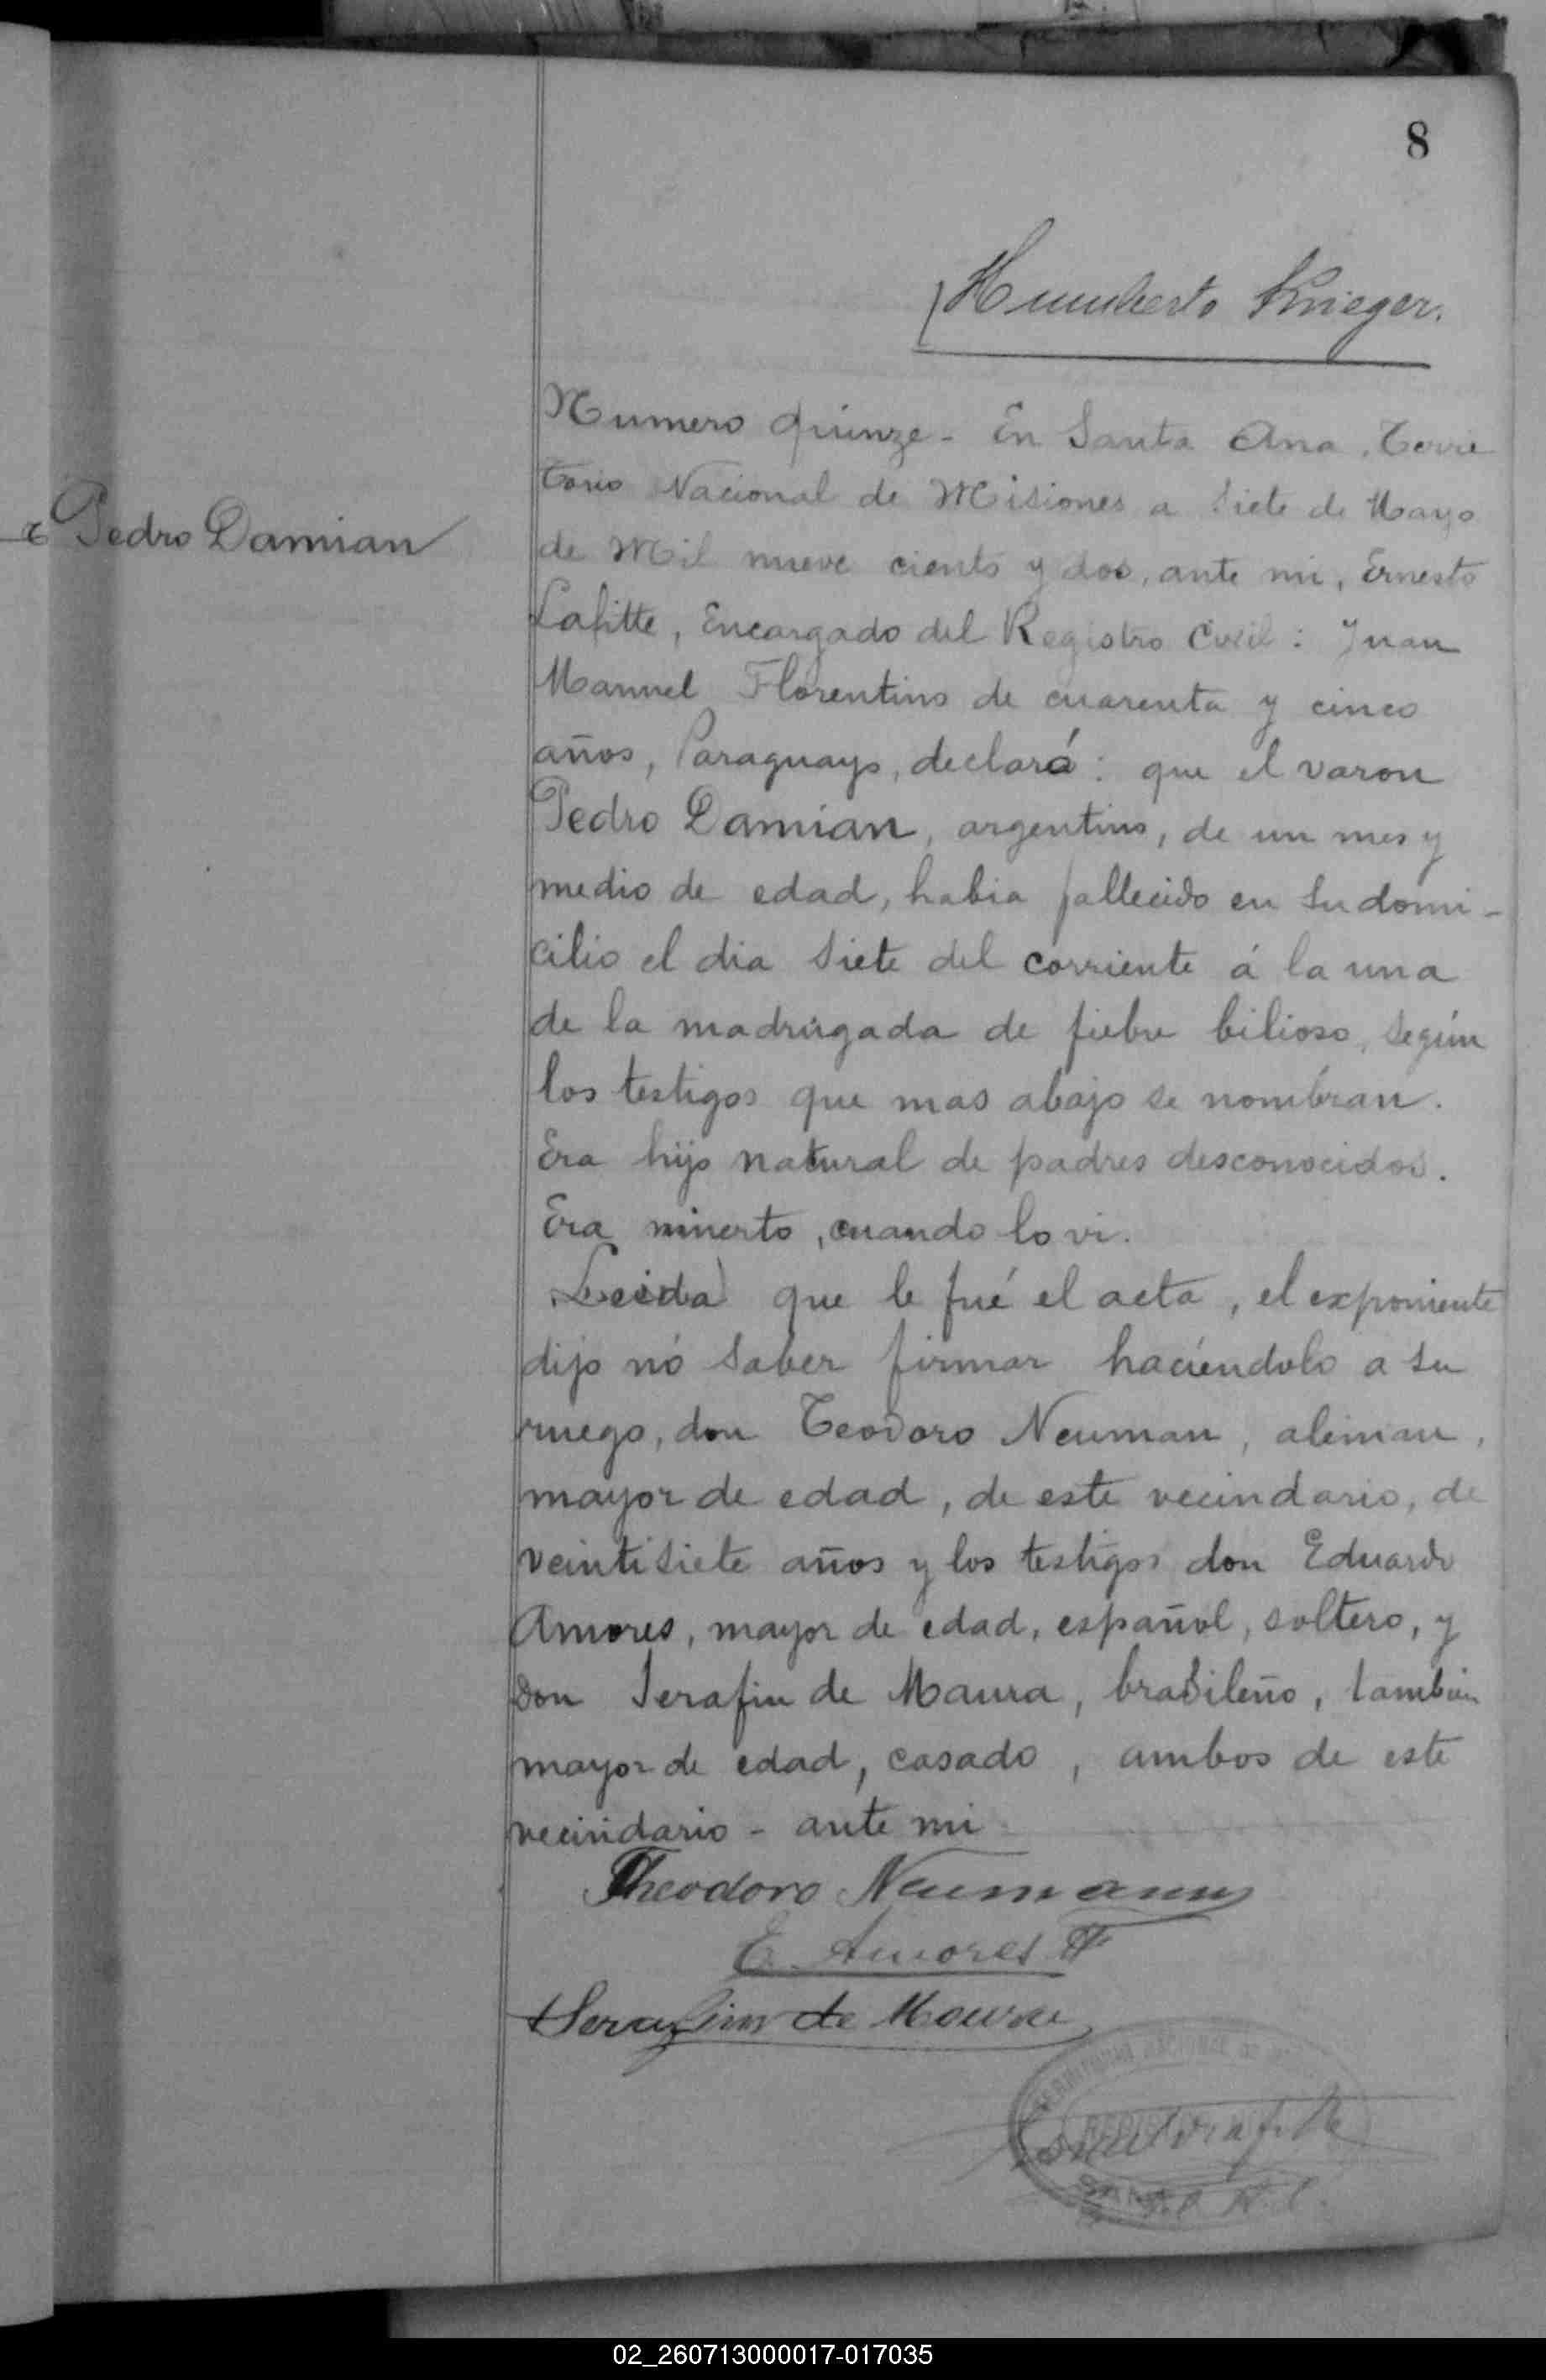 8
Humberto Krieger.
Numero quinze - En Santa Ana, Terri
torio Nacional de Misiones a siete de Mayo
Pedro Damian
de Mil nueve ciento y dos, ante mi, Ernesto
Lafitte, Encargado del Registro Civil: Juan
Manuel Florentino de cuarenta y cinco
años, Paraguayo, declará: que el varon
Pedro Damian, argentino, de un mes y
medio de edad, habia fallecido en su domi-
cilio el dia siete del corriente á la una
de la madrugada de fiebre bilioso, según
los testigos que mas abajo se nombran.
Era hijo natural de padres desconocidos.
Era muerto, cuando lo vi.
Leida que le fué el acta, el exponiente
dijo nó saber firmar haciéndolo a su
ruego, don Teodoro Neuman, aleman,
mayor de edad, de este vecindario, de
veintisiete años y los testigos don Eduardo
Amores, mayor de edad, español, soltero, y
don Serafin de Maura, brasileño, tambien
mayor de edad, casado, ambos de este
vecindario - ante mi
Theodoro Neumann
E. Amores
Serafim de Moura
TERRITORIO NACIONAL DE
REGISTRO
02_260713000017-017035